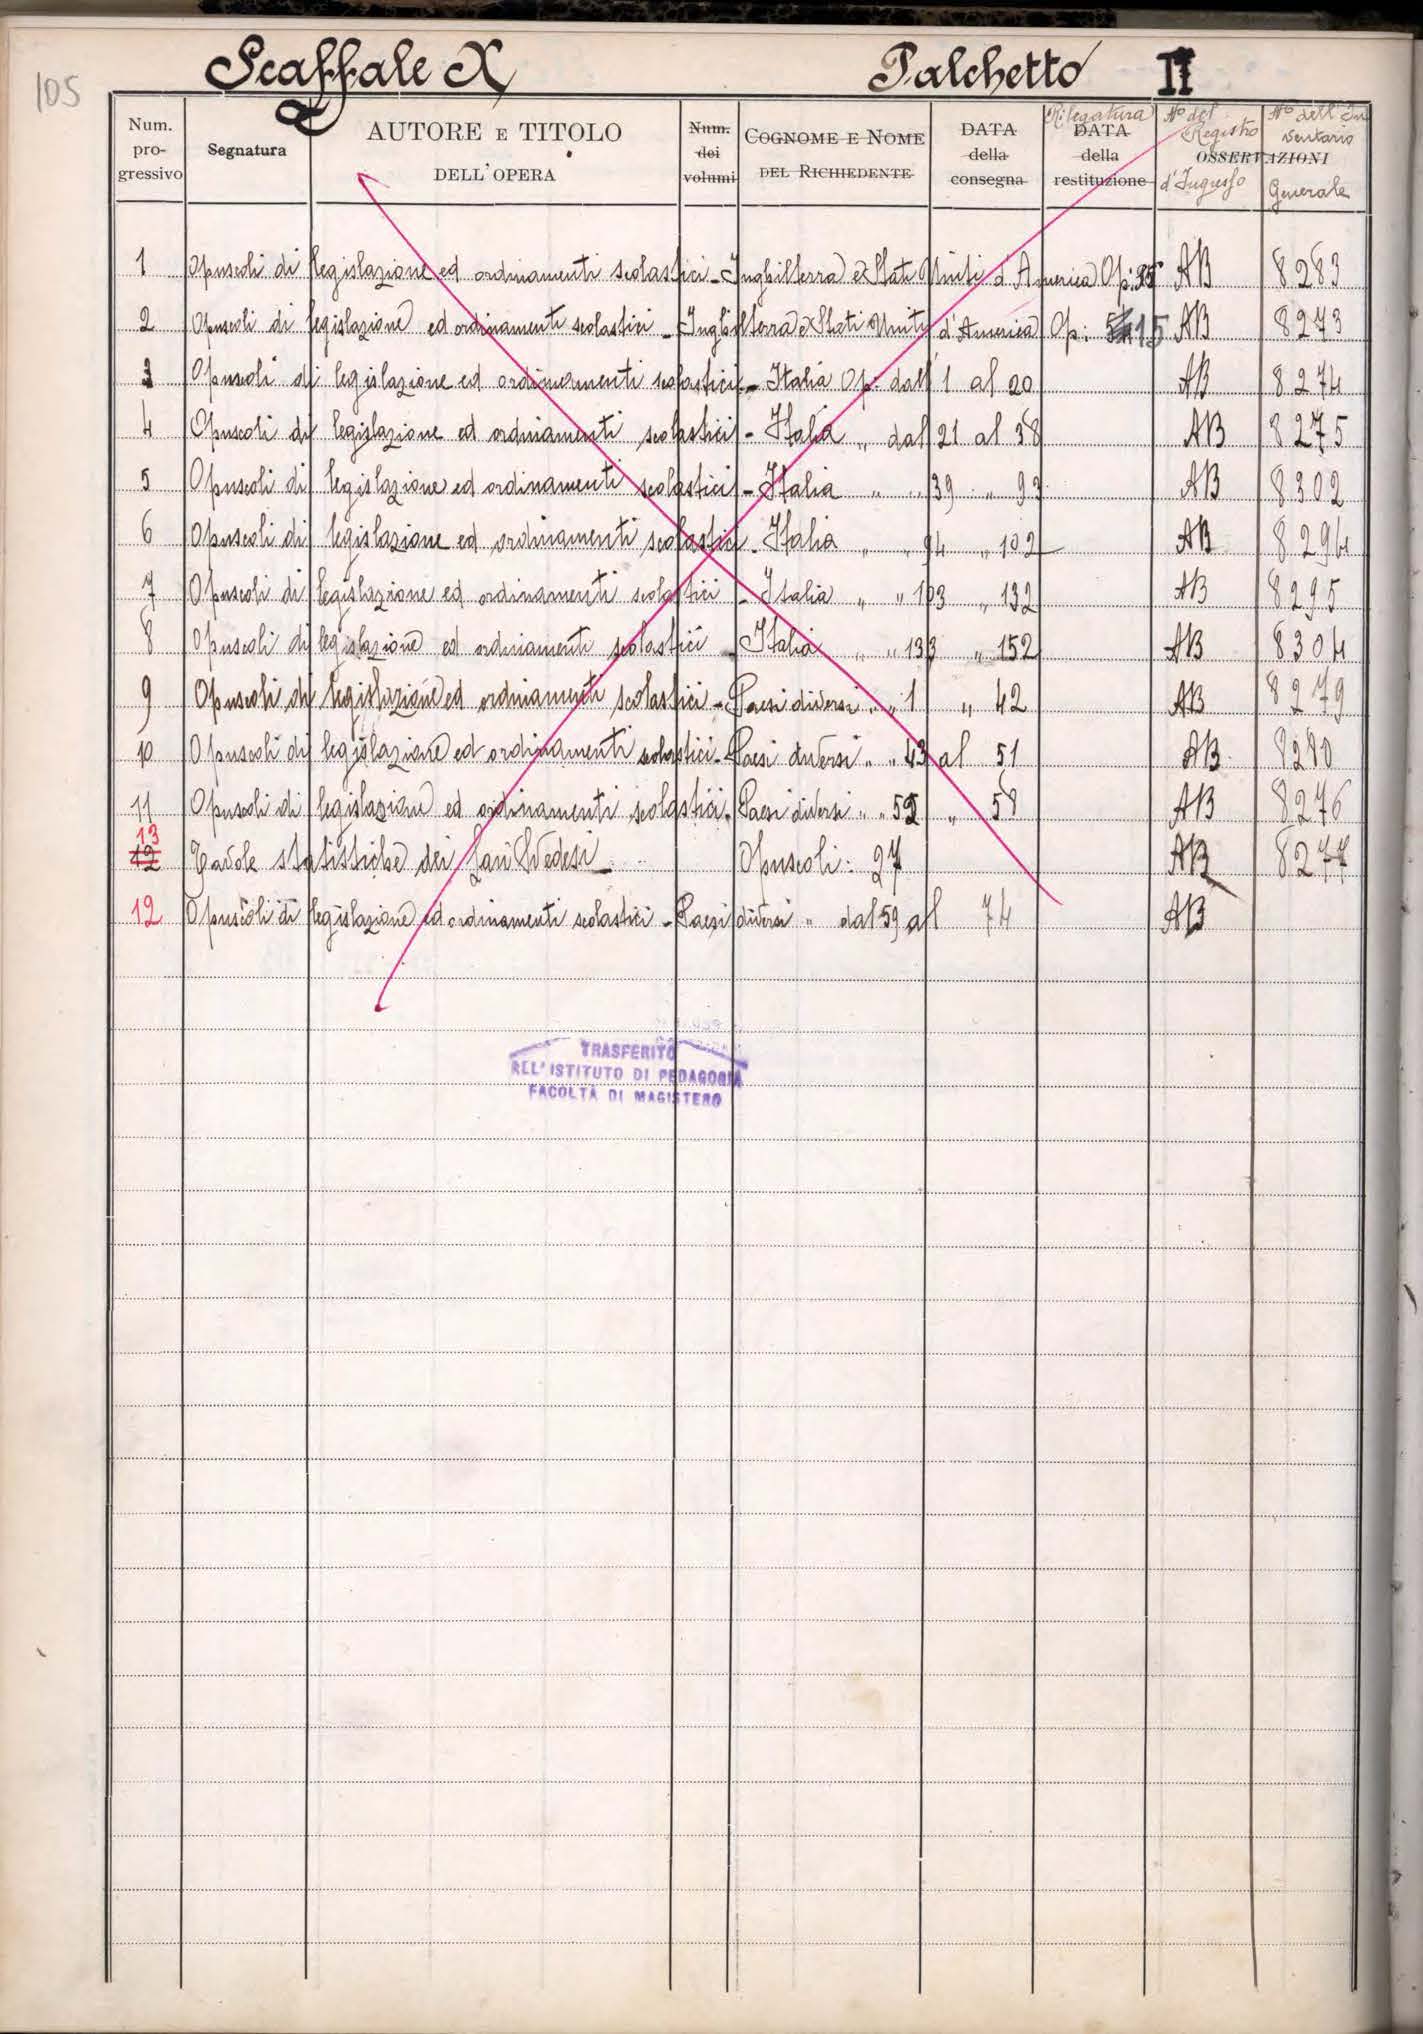 105
Scaffale X Palchetto II
Num. progressivo Segnatura AUTORE E TITOLO DELL'OPERA Num. dei volumi COGNOME E NOME DEL RICHIEDENTE DATA della consegna Rilegatura DATA della restituzione No del Registro d'Ingresso OSSERVAZIONI No dell'Inventario Generale
1 Opuscoli di legislazione ed ordinamenti scolastici - Inghilterra e Stati Uniti d'America Op: AB 8283
2 Opuscoli di legislazione ed ordinamenti scolastici - Inghilterra e Stati Uniti d'America Op: 15 AB 8273
3 Opuscoli di legislazione ed ordinamenti scolastici - Italia Op: dall 1 al 20 AB 8274
4 Opuscoli di legislazione ed ordinamenti scolastici - Italia " dal 21 al 38 AB 8275
5 Opuscoli di legislazione ed ordinamenti scolastici - Italia " " 39 " 93 AB 8302
6 Opuscoli di legislazione ed ordinamenti scolastici - Italia " " 94 " 102 AB 8294
7 Opuscoli di legislazione ed ordinamenti scolastici - Italia " " 103 " 132 AB 8295
8 Opuscoli di legislazione ed ordinamenti scolastici - Italia " " 133 " 152 AB 8304
9 Opuscoli di legislazione ed ordinamenti scolastici - Paesi diversi " " 1 " 42 AB 8279
10 Opuscoli di legislazione ed ordinamenti scolastici - Paesi diversi " " 43 al 51 AB 8280
11 Opuscoli di legislazione ed ordinamenti scolastici - Paesi diversi " " 52 " 58 AB 8276
13 12 Tavole statistiche dei Opuscoli: 27 AB 8277
12 Opuscoli di legislazione ed ordinamenti scolastici - Paesi diversi " dal 59 al 74 AB
TRASFERITO
ALL'ISTITUTO DI PEDAGOGIA
FACOLTÀ DI MAGISTERO